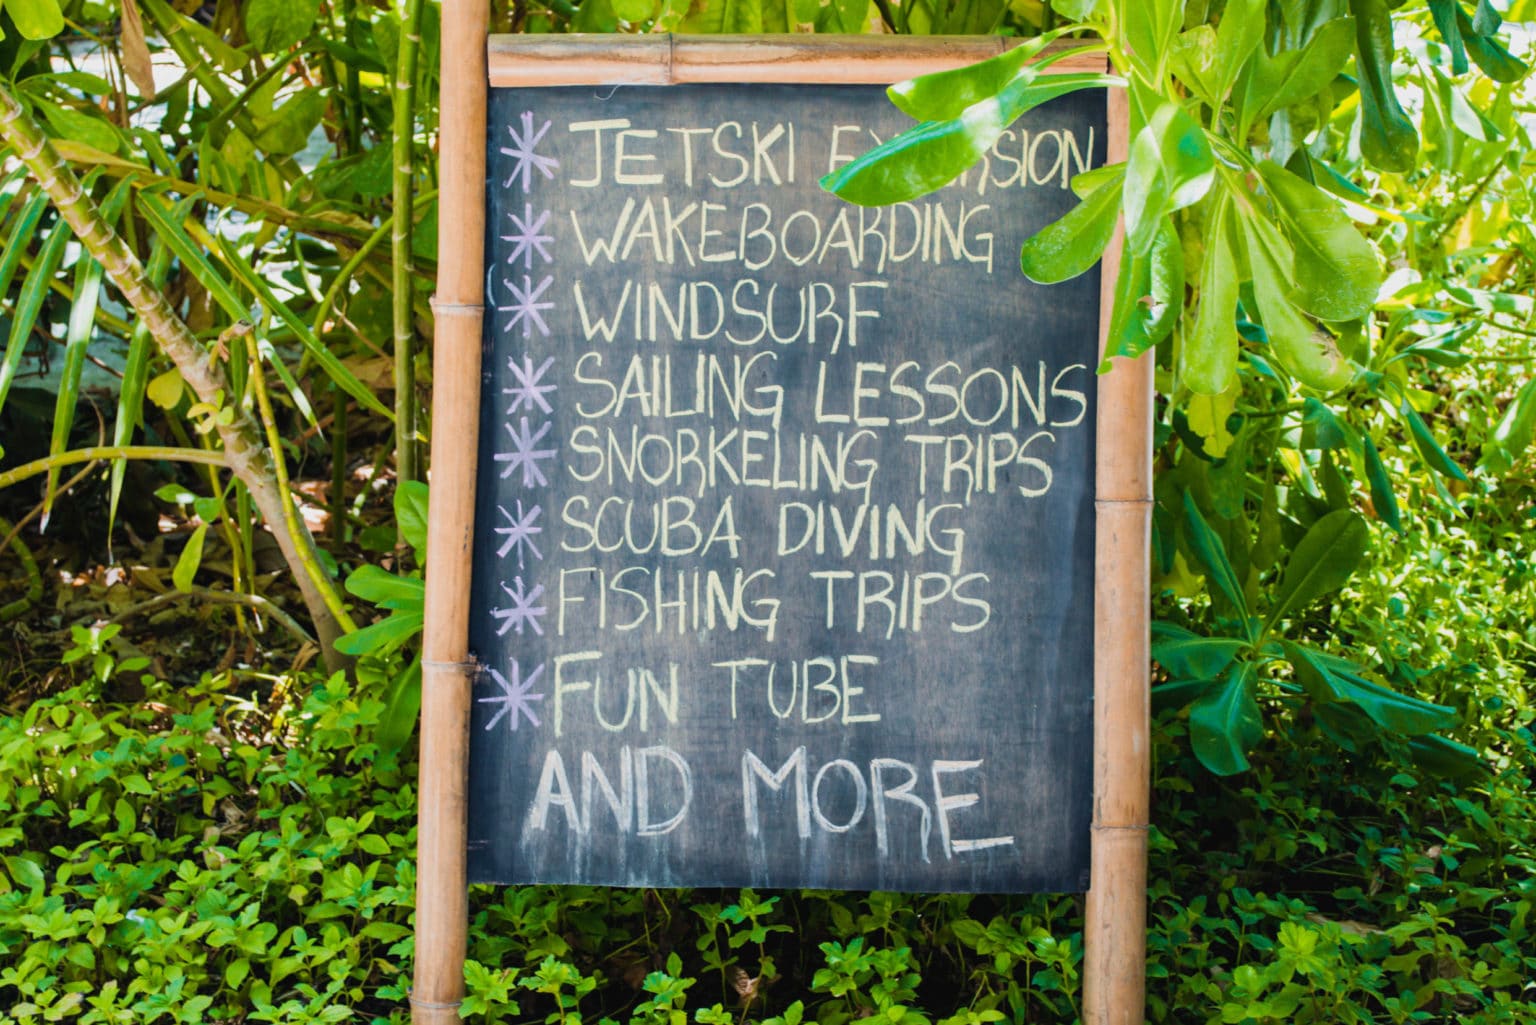 * JETSKI
* WAKEBOARDING
* WINDSURF
* SAILING LESSONS
* SNORKELING TRIPS
* SCUBA DIVING
* FISHING TRIPS
* FUN TUBE
AND MORE